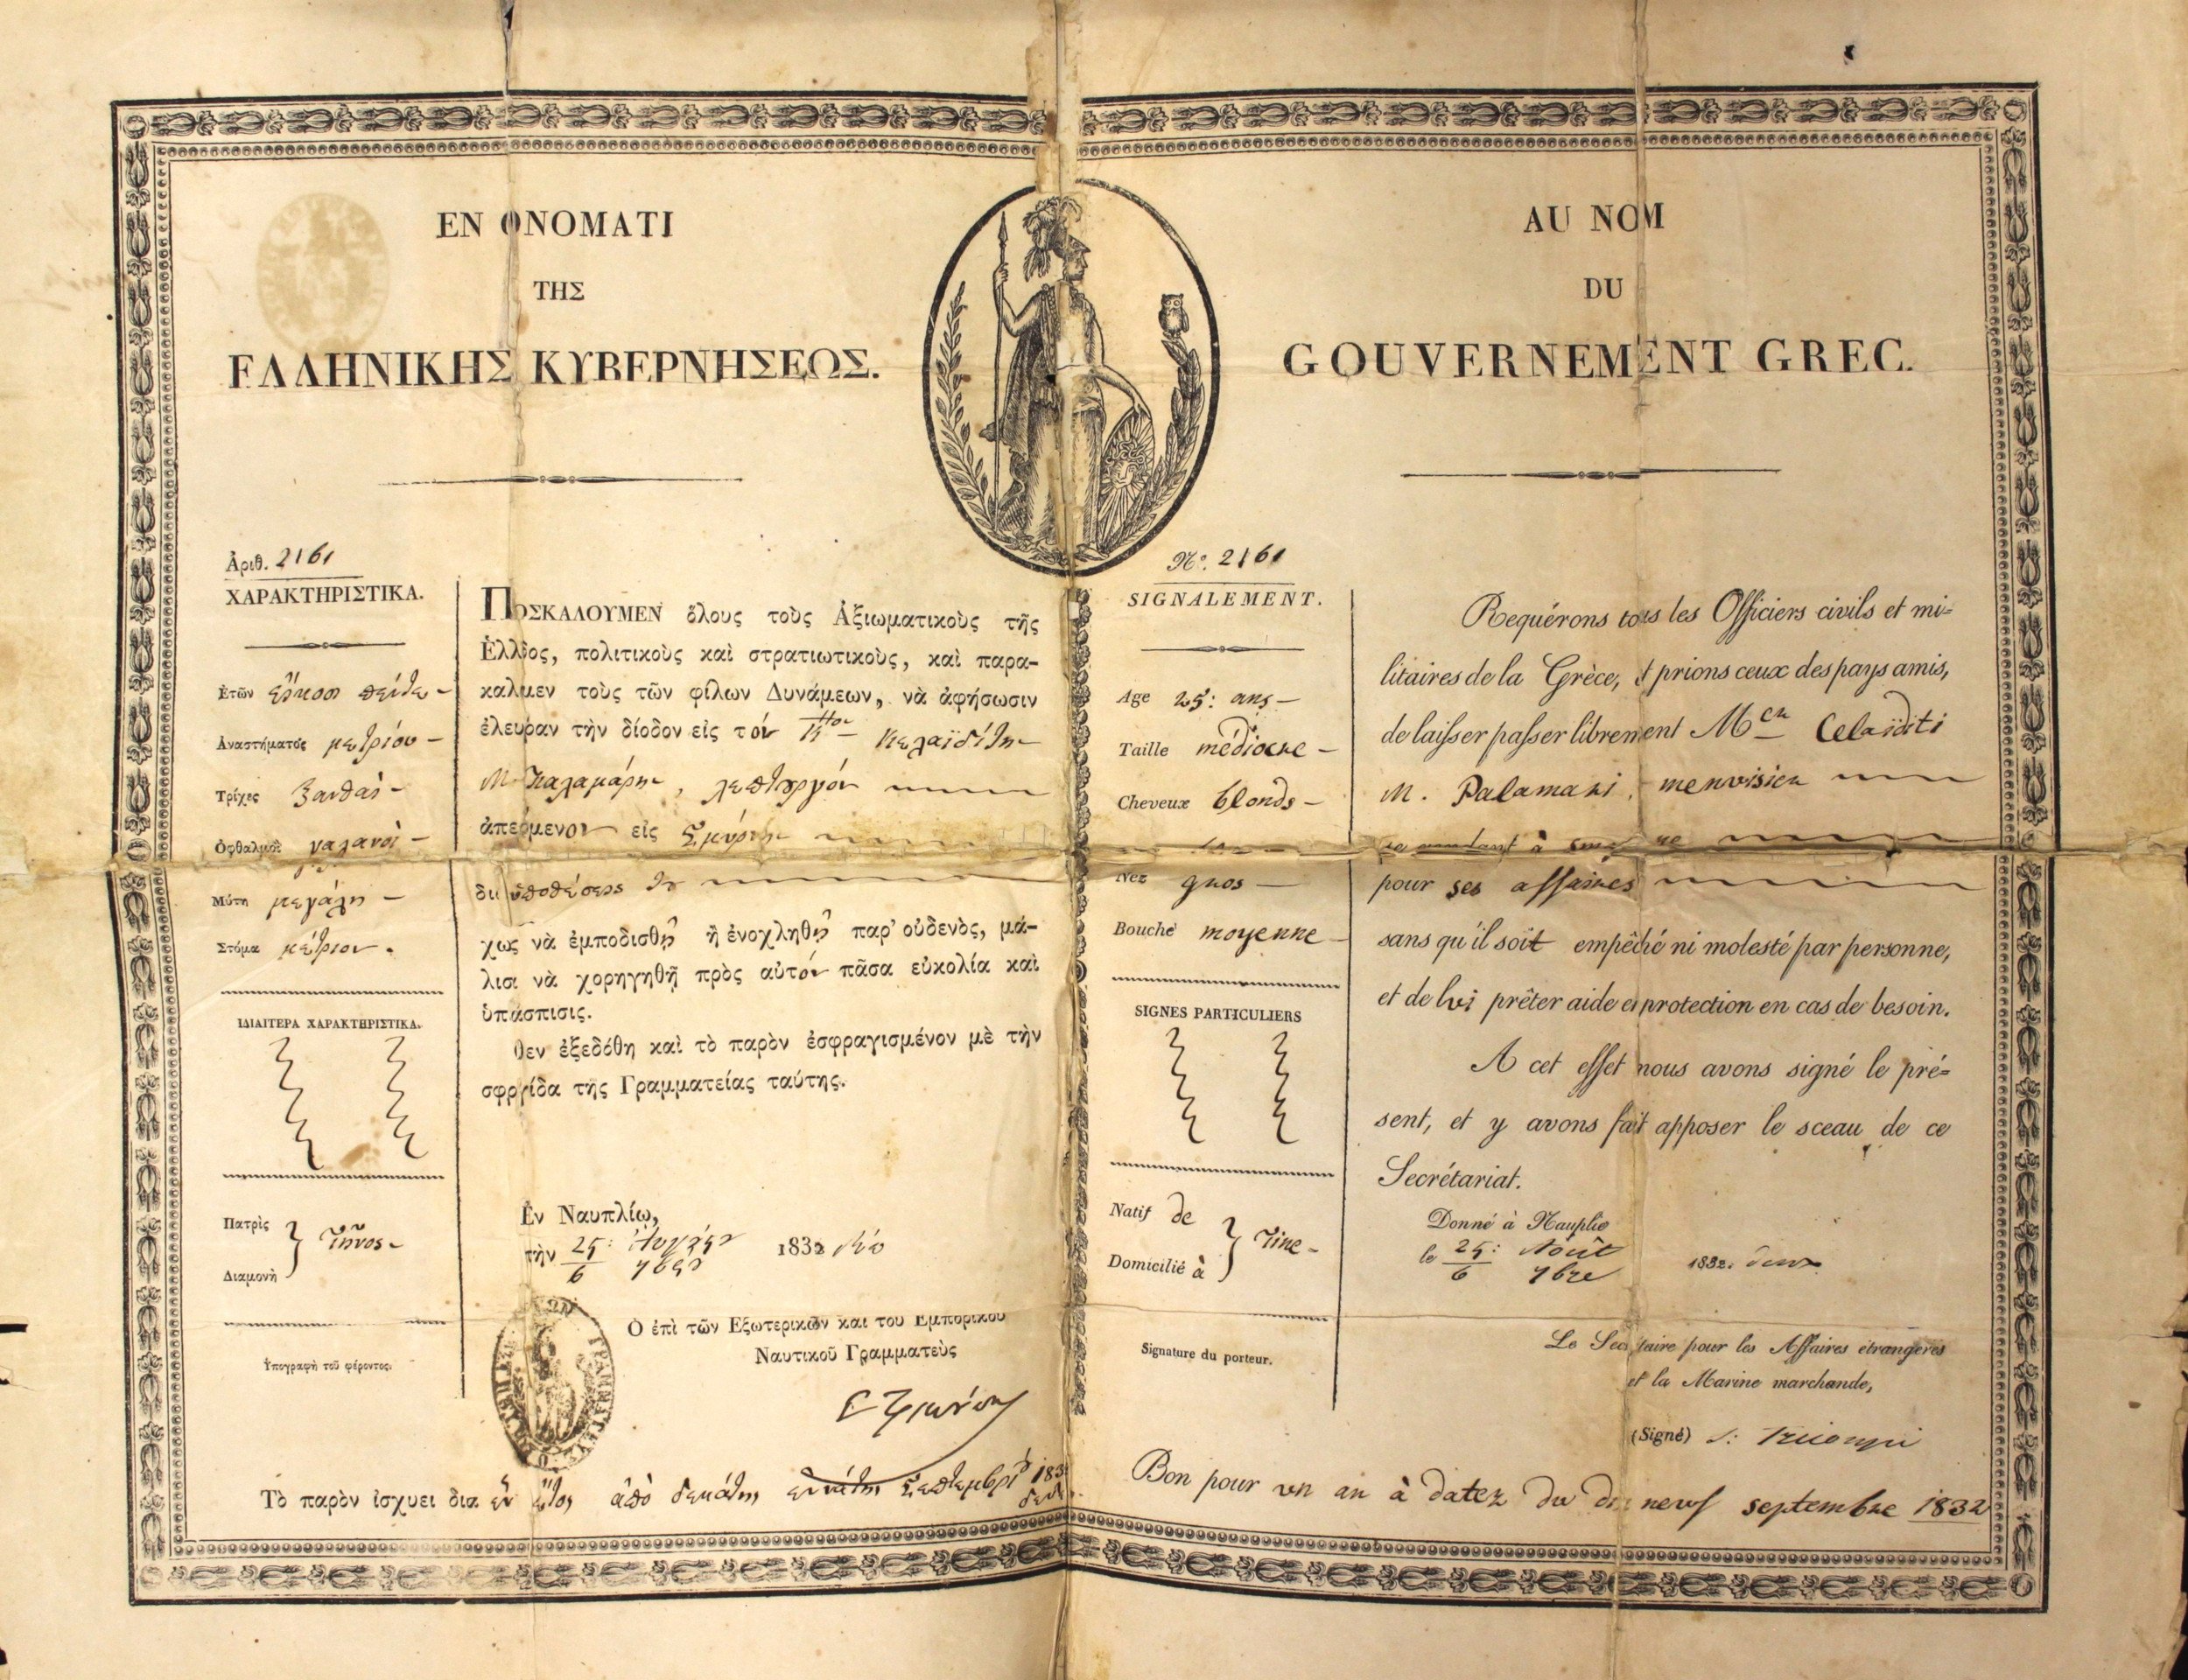 ΕΝ ΟΝΟΜΑΤΙ
ΤΗΣ
ΕΛΛΗΝΙΚΗΣ ΚΥΒΕΡΝΗΣΕΩΣ.
Ἀριθ. 2161
ΧΑΡΑΚΤΗΡΙΣΤΙΚΑ.
Ἐτῶν εἴκοσι πέντε
Ἀναστήματος μετρίου
Τρίχες ξανθαὶ
Ὀφθαλμοὶ γαλανοὶ
Μύτη μεγάλη
Στόμα μέτριον.
ΙΔΙΑΙΤΕΡΑ ΧΑΡΑΚΤΗΡΙΣΤΙΚΑ.
Πατρὶς
Τῆνος
Διαμονὴ
Ὑπογραφὴ τοῦ φέροντος.
ΠΟΣΚΑΛΟΥΜΕΝ ὅλους τοὺς Ἀξιωματικοὺς τῆς
Ἑλλδος, πολιτικοὺς καὶ στρατιωτικοὺς, καὶ παρα-
καλμεν τοὺς τῶν φίλων Δυνάμεων, νὰ ἀφήσωσιν
ἐλευραν τὴν δίοδον εἰς τόν Κελαϊδίτην
Μ. Παλαμάρην, λεπτουργόν
ἀπερμενον εἰς Σμύρνην
δι ὑποθέσεις του
χως νὰ ἐμποδισθῇ ἢ ἐνοχληθῇ παρ' οὐδενὸς, μά-
λισ νὰ χορηγηθῇ πρὸς αὐτόν πᾶσα εὐκολία καὶ
ὑπάσπισις.
θεν ἐξεδόθη καὶ τὸ παρὸν ἐσφραγισμένον μὲ τὴν
σφργίδα τῆς Γραμματείας ταύτης.
Ἐν Ναυπλίῳ,
τὴν 25: Αὐγούστου 1832 δύο
6 7βρίου
Ὁ ἐπὶ τῶν Ἐξωτερικῶν καὶ τοῦ Ἐμπορικοῦ
Ναυτικοῦ Γραμματεὺς
Τὸ παρὸν ἰσχύει διὰ ἓν ἔτος ἀπὸ δεκάτης ἐννάτης Σεπτεμβρίου 183
AU NOM
DU
GOUVERNEMENT GREC.
N.º 2161
SIGNALEMENT.
Age 25: ans
Taille médiocre
Cheveux blonds
Nez gros
Bouche moyenne
SIGNES PARTICULIERS
Natif de
Tine
Domicilié à
Signature du porteur.
Requérons tous les Officiers civils et mi-
litaires de la Grèce, et prions ceux des pays amis,
de laisser passer librement Mer Celaïditi
M. Palamari, menuisier
se rendant à
pour ses affaires
sans qu'il soit empêché ni molesté par personne,
et de lui prêter aide et protection en cas de besoin.
A cet effet nous avons signé le pré-
sent, et y avons fait apposer le sceau de ce
Secrétariat.
Donné à Nauplie
le 25: Août 1832. deux
6 7bre
Le Secrétaire pour les Affaires étrangères
et la Marine marchande,
(Signé) S: Tricoupi
Bon pour un an à dater du dix neuf septembre 1832